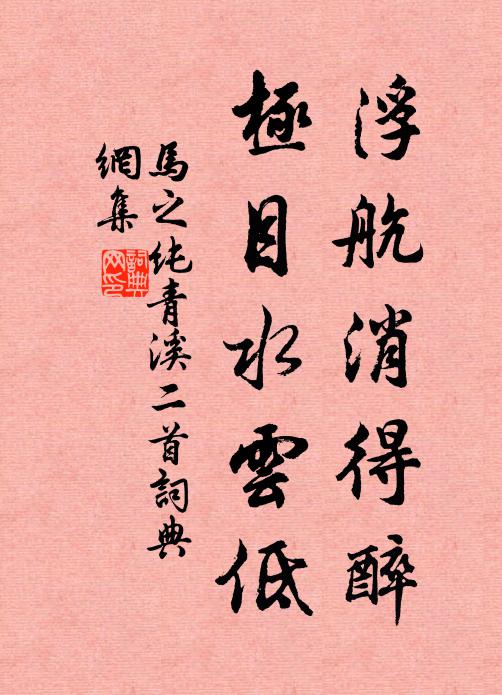 浮航消得醉
極目水雲低
馬之纯青溪二首詞典
網集
詞典
网印